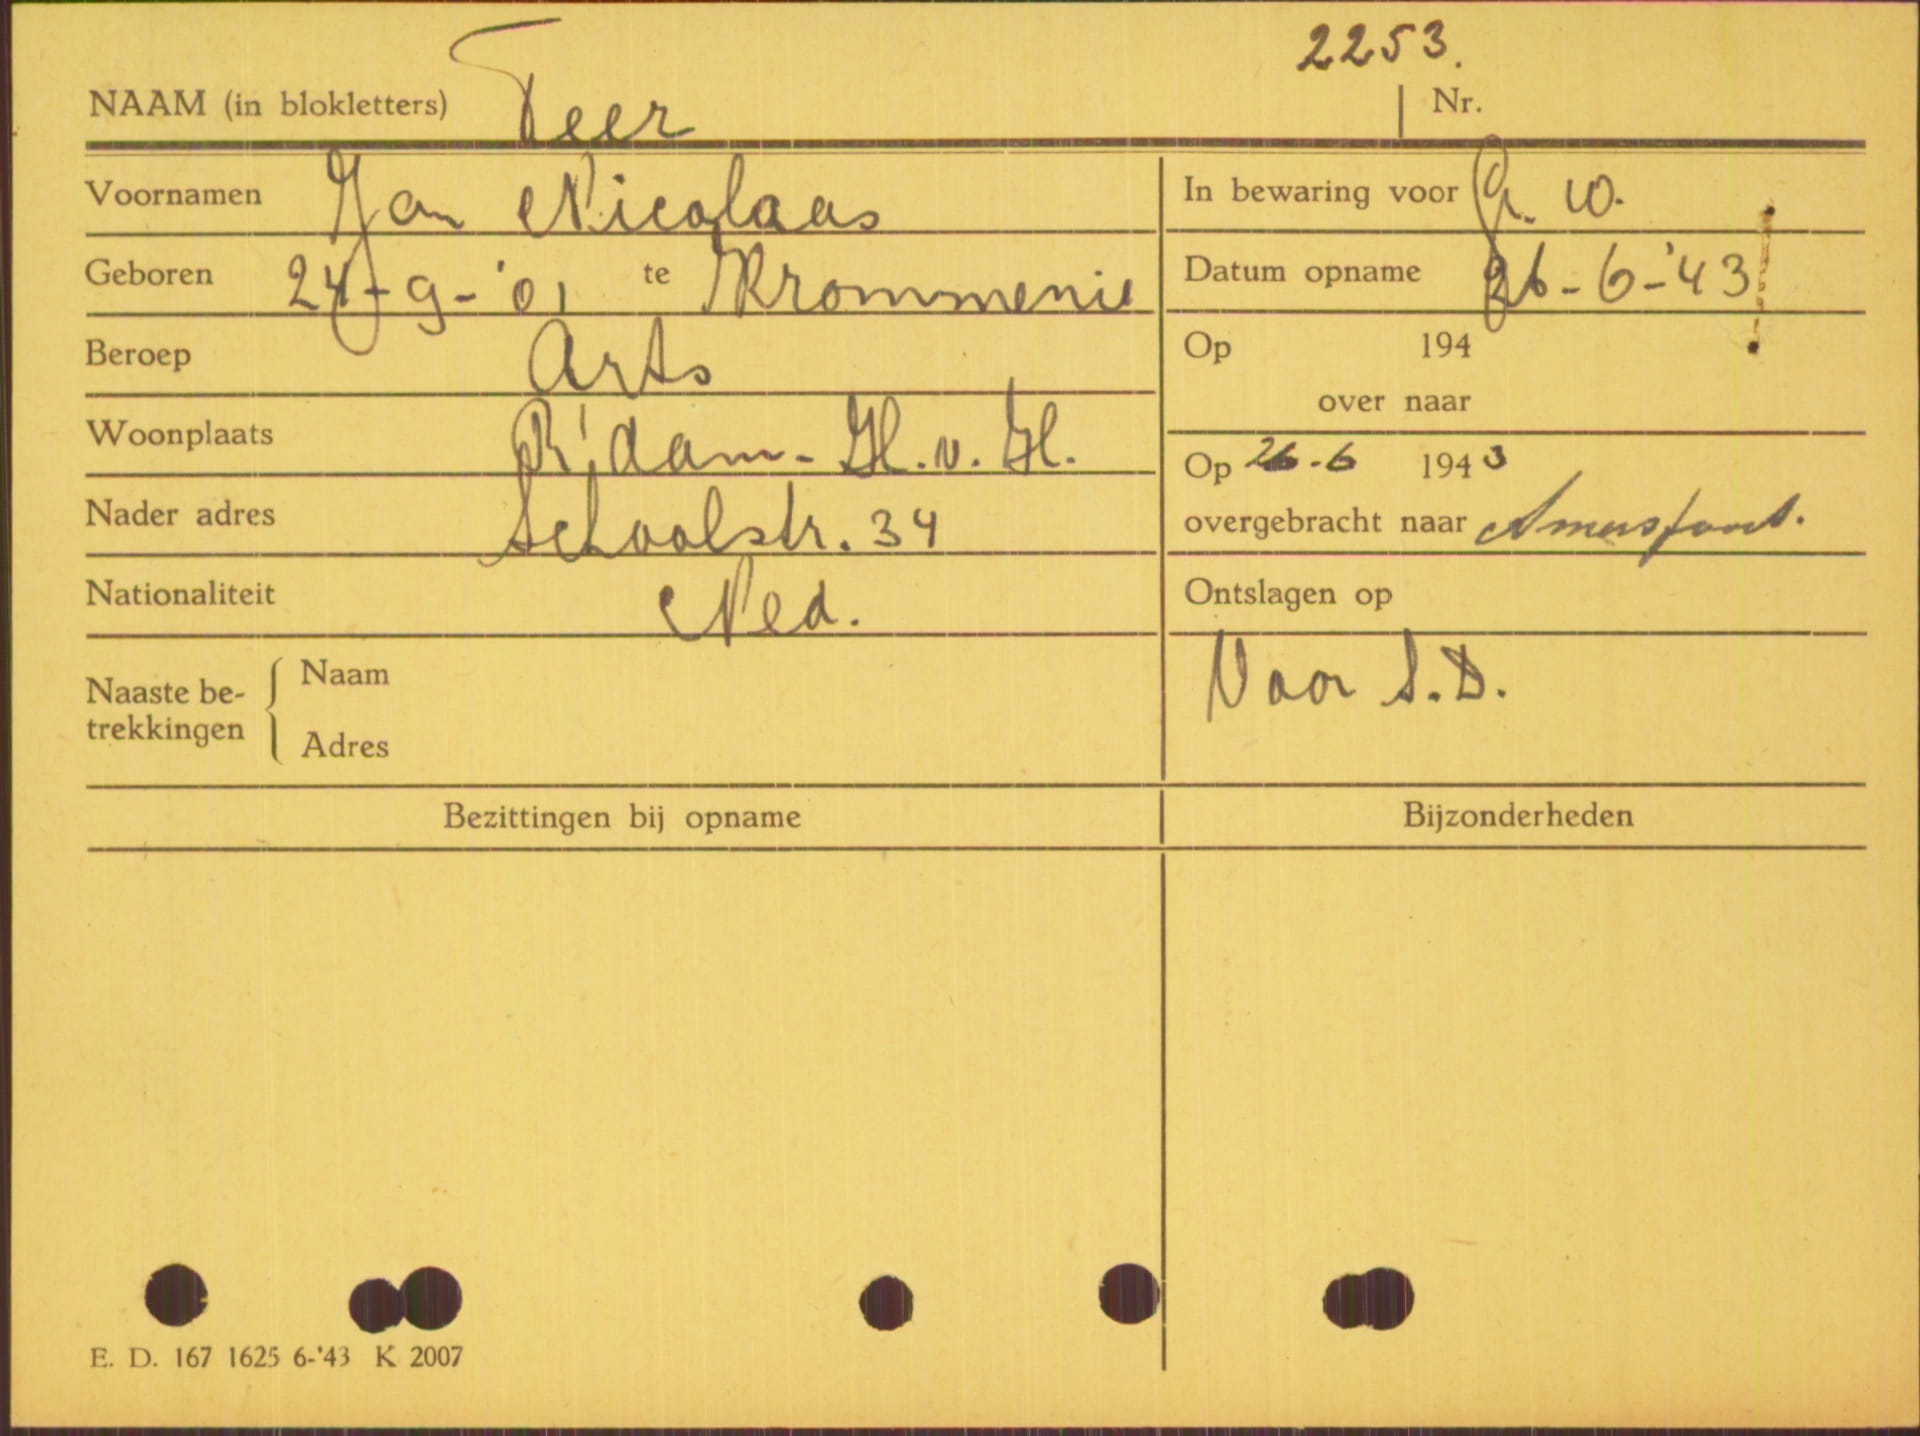 2253.
NAAM (in blokletters) Teer Nr.
Voornamen Jan Nicolaas
Geboren 24-9-'01 te Krommenie
Beroep Arts
Woonplaats R'dam-H.v.H.
Nader adres Schoolstr. 34
Nationaliteit Ned.
Naaste be-
trekkingen
Naam
Adres
In bewaring voor g. w.
Datum opname 26-6-'43
Op 194
over naar
Op 26-6 1943
overgebracht naar Amersfoort.
Ontslagen op
Voor S.D.
Bezittingen bij opname
Bijzonderheden
E. D. 167 1625 6-'43 K 2007